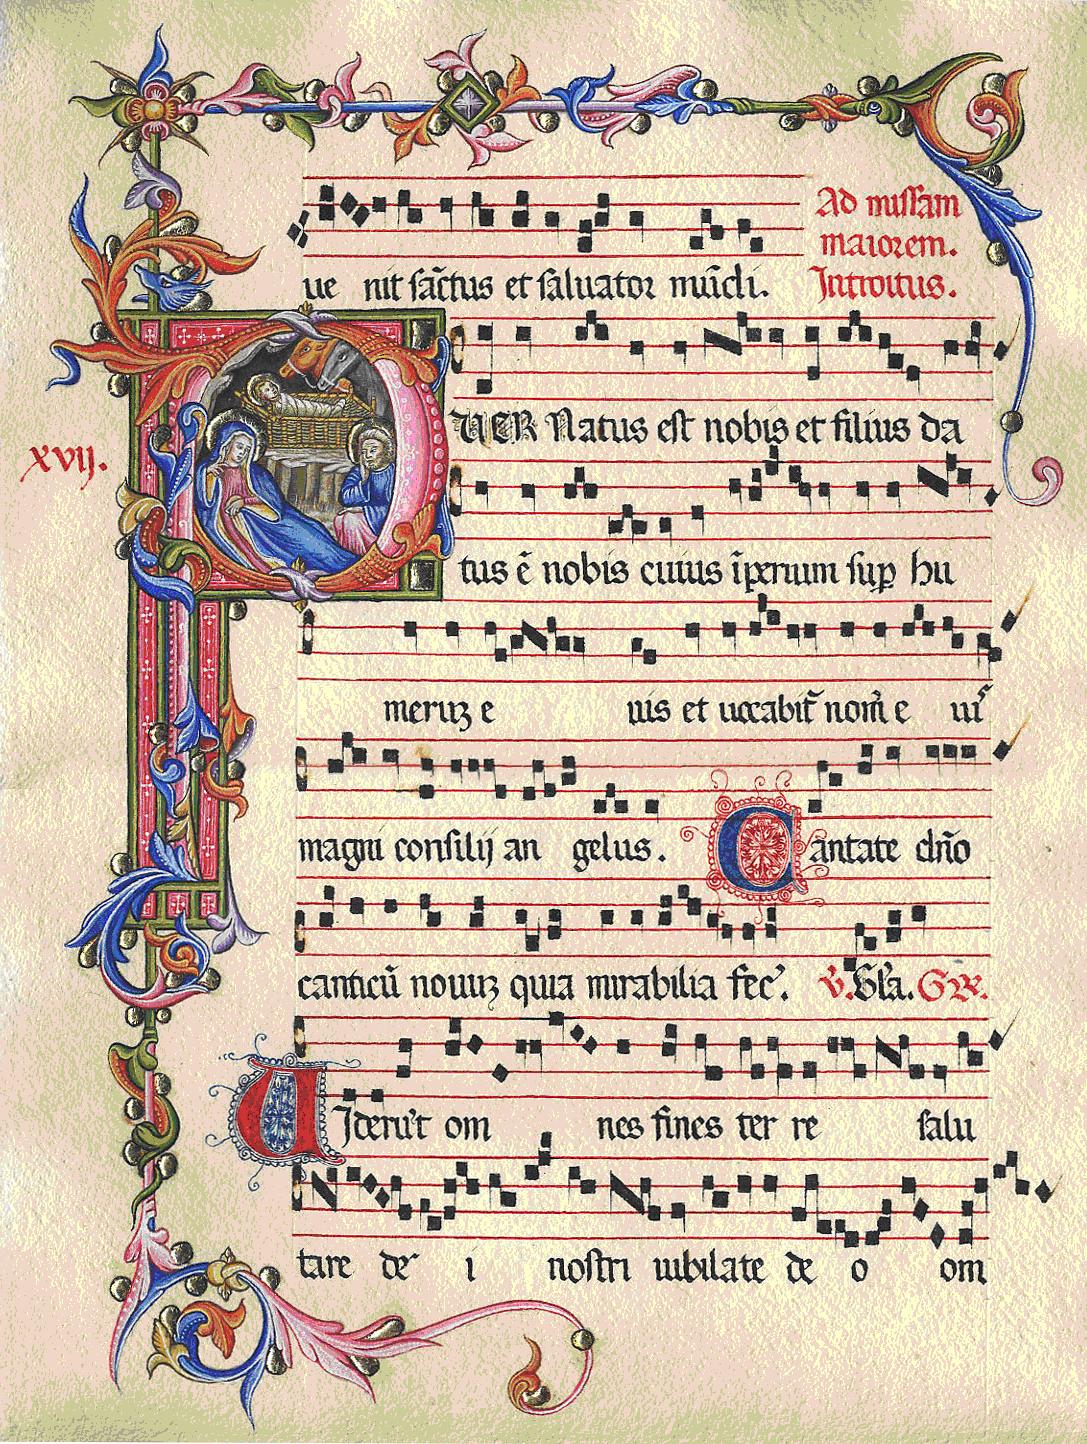 ue nit sāctus et saluator mūdi. Ad missam
maiorem.
Introitus.
PUER Natus est nobis et filius da
xvij.
tus ē nobis cuius īperium sup hu
meruz e uis et uocabit᷑ nom̄ e iuˢ
magni consilij an gelus. Cantate dn̄o
canticū nouuz quia mirabilia fec᾽. V. Gl̄a. Gr̄.
Uideru᾽t om nes fines ter re salu
tare de i nostri iubilate de o om